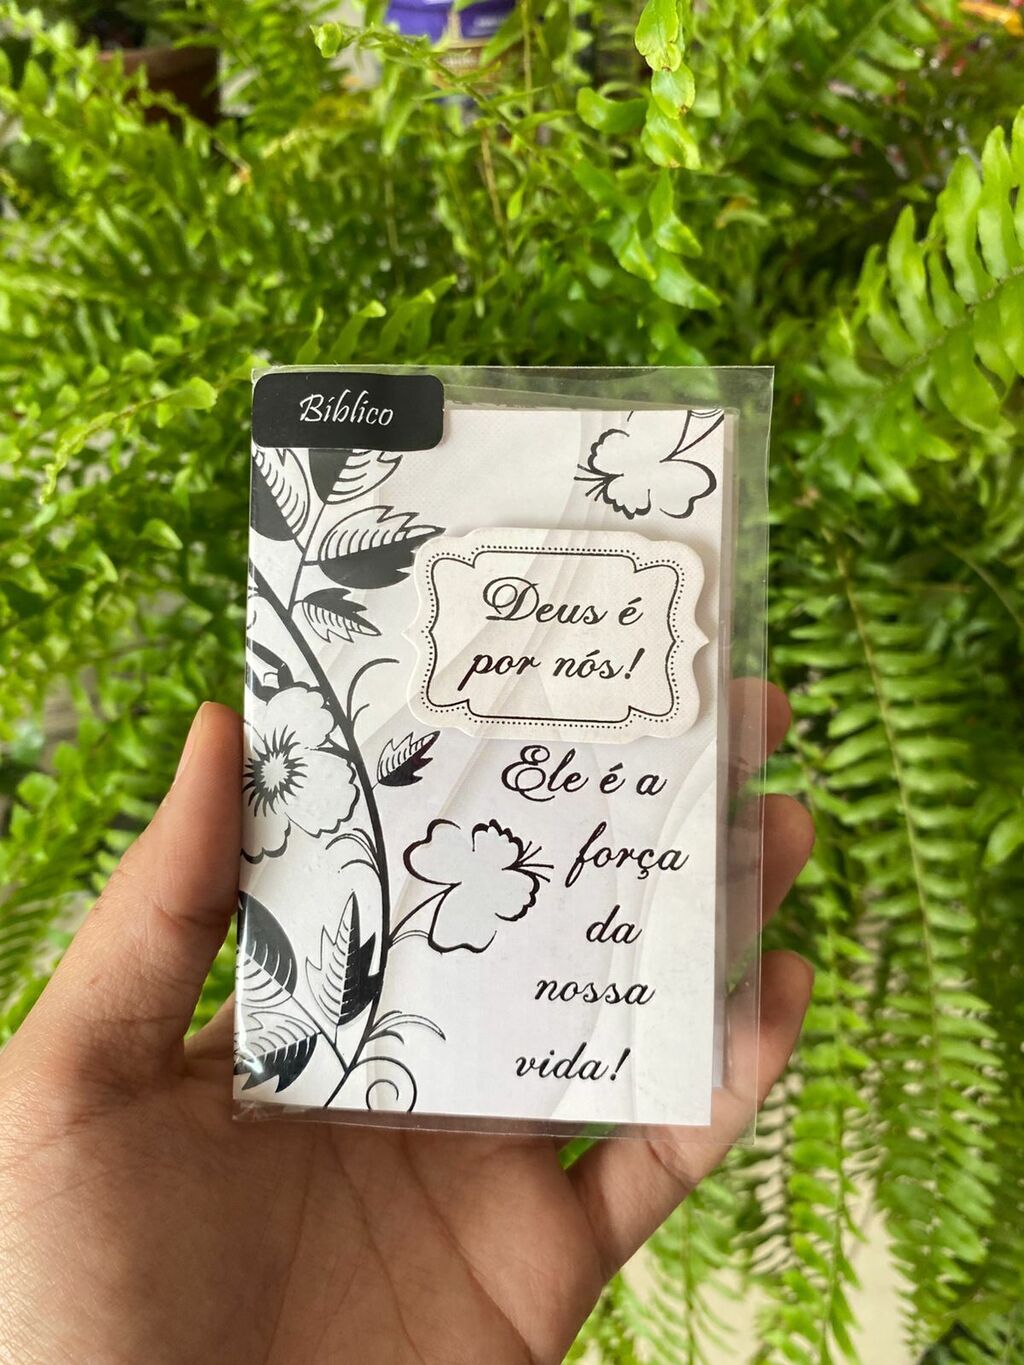 Bíblico
Deus é
por nós!
Ele é a
força
da
nossa
vida!